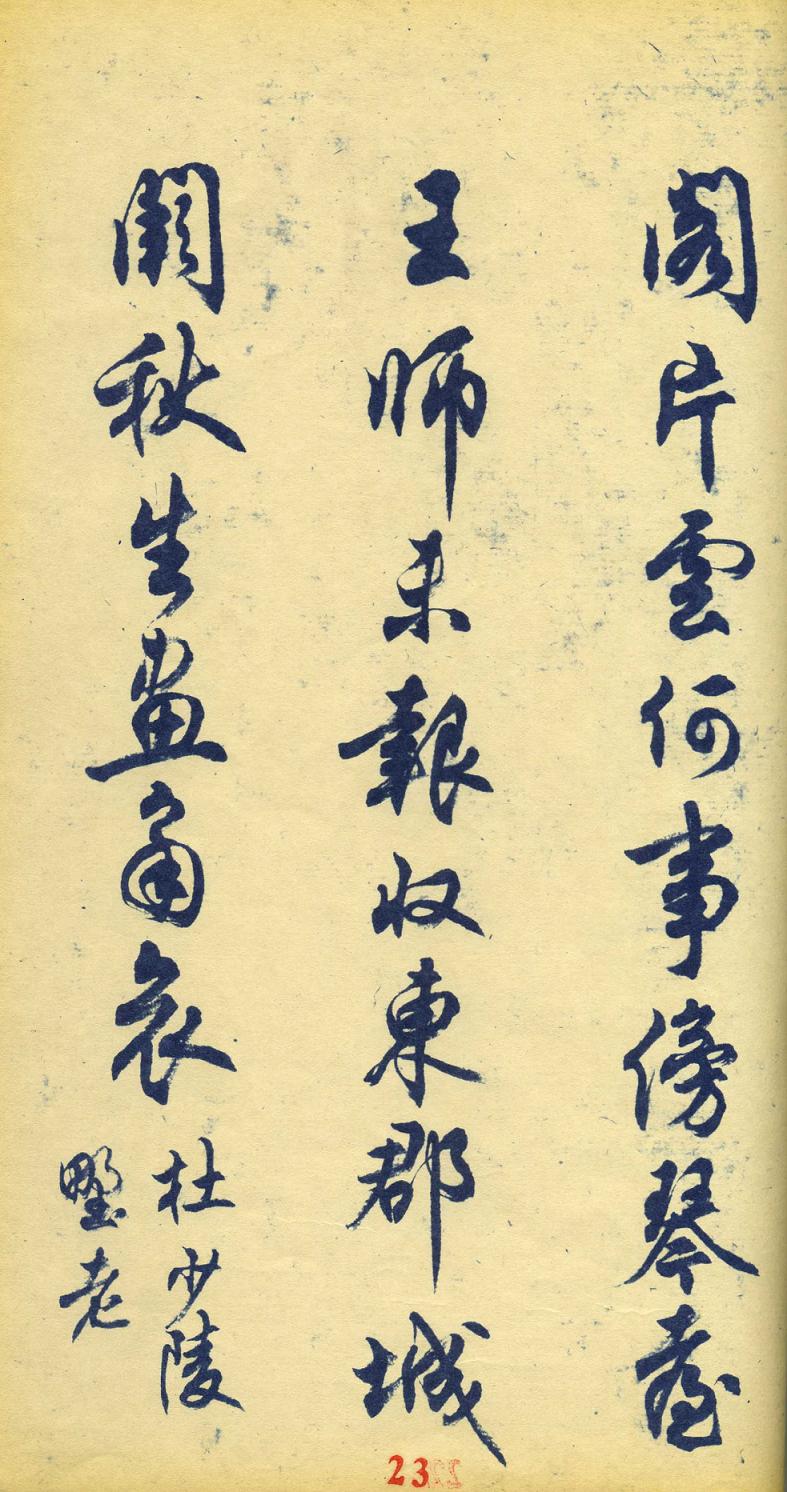 閣片雲何事傍琴臺
王師未報收東郡城
闕秋生畫角哀
杜少陵
墅老
23